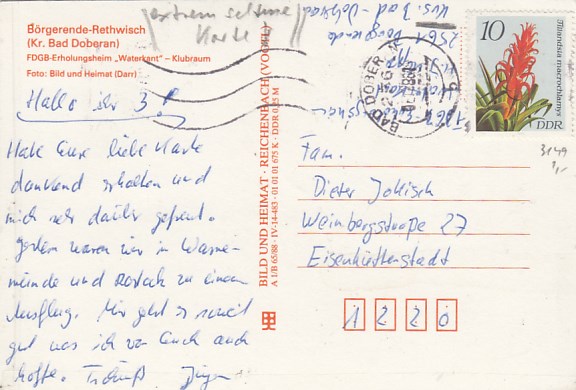 Börgerende-Rethwisch
(Kr. Bad Doberan)
FDGB-Erholungsheim „Waterkant“ – Klubraum
Foto: Bild und Heimat (Darr)
extrem seltene
Karte
Hallo ihr 3!
Habe Eure liebe Karte
dankend erhalten und
mich sehr darüber gefreut.
Gestern waren wir in Warne-
münde und Rostock zu einem
Ausflug. Mir geht es soweit
gut was ich von Euch auch
hoffe. Tschüß Jürgen
BILD UND HEIMAT · REICHENBACH (VOGTL)
A 1/B 65/88 · IV-14-483 · 01 01 01 675 K · DDR 0,25 M
BAD DOBERAN
10
Tillandsia macrochlamys
DDR
3149
Fam.
Dieter Jokisch
Weinbergstraße 27
Eisenhüttenstadt
1220